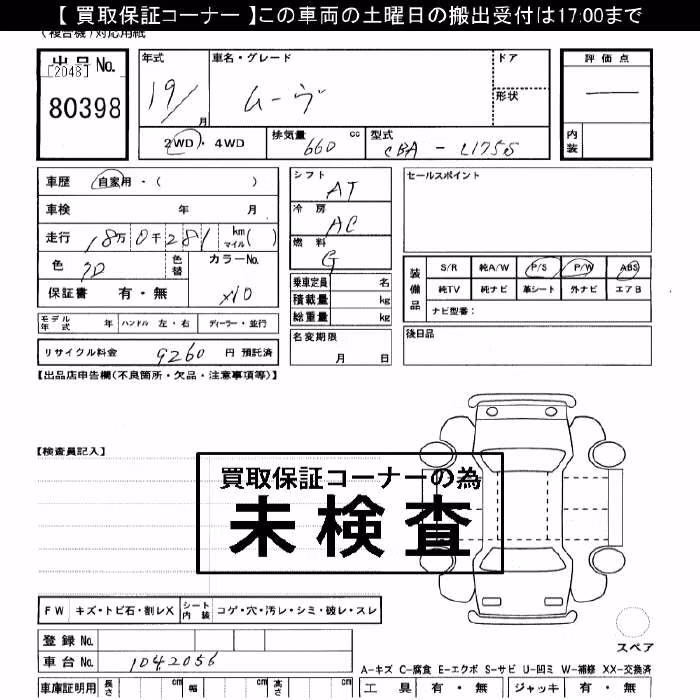 【 買取保証コーナー 】この車両の土曜日の搬出受付は17:00まで
(複合機)対応用紙
出品No.
[2048]
80398
年式
19/
月
車名・グレード
ムーヴ
ドア
形状
評価点
内装
2WD・4WD
排気量 660 cc
型式 CBA - L175S
車歴 自家用・( )
車検 年 月
走行 18万0千281 km マイル( )
色
色替
カラーNo.
X10
保証書 有・無
シフト
AT
冷房
AC
燃料
G
乗車定員 名
積載量 kg
総重量 kg
名変期限
月 日
セールスポイント
装備品
S/R 純A/W P/S P/W ABS
純TV 純ナビ 革シート 外ナビ エアB
ナビ型番:
後日品
モデル年式 年 ハンドル 左・右 ディーラー・並行
リサイクル料金 9260 円 預託済
【出品店申告欄(不良箇所・欠品・注意事項等)】
【検査員記入】
買取保証コーナーの為
未検査
FW キズ・トビ石・割レX シート内装 コゲ・穴・汚レ・シミ・破レ・スレ
登録 No.
車台 No. 1042056
車庫証明用 長さ cm 幅 cm 高さ cm
スペア
A-キズ C-腐食 E-エクボ S-サビ U-凹ミ W-補修 XX-交換済
工具 有・無 ジャッキ 有・無